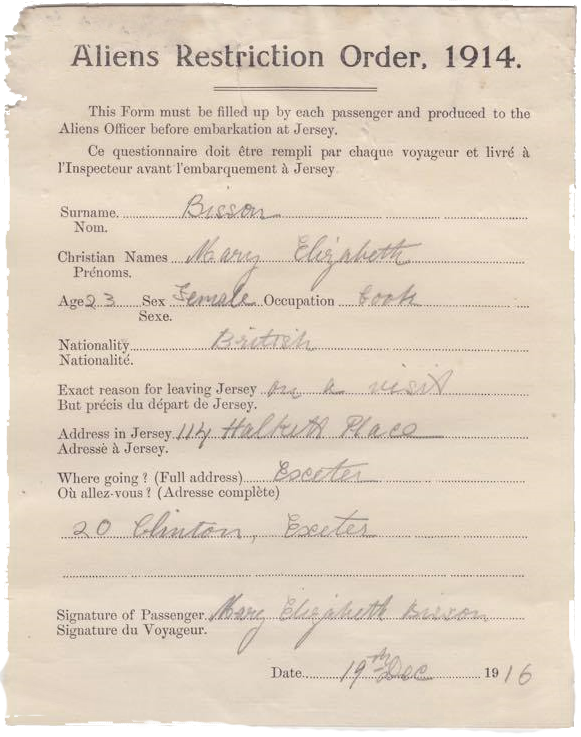 Aliens Restriction Order, 1914.
This Form must be filled up by each passenger and produced to the
Aliens Officer before embarkation at Jersey.
Ce questionnaire doit être rempli par chaque voyageur et livré à
l'Inspecteur avant l'embarquement à Jersey.
Surname. Bisson
Nom.
Christian Names Mary Elizabeth
Prénoms.
Age 23 Sex Female Occupation Cook
Sexe.
Nationality British
Nationalité.
Exact reason for leaving Jersey on a visit
But précis du départ de Jersey.
Address in Jersey Halkett Place
Adresse à Jersey.
Where going? (Full address) Exceter
Où allez-vous? (Adresse complète)
20 Clinton, Exeter
Signature of Passenger Mary Elizabeth Bisson
Signature du Voyageur.
Date 19th Dec 1916